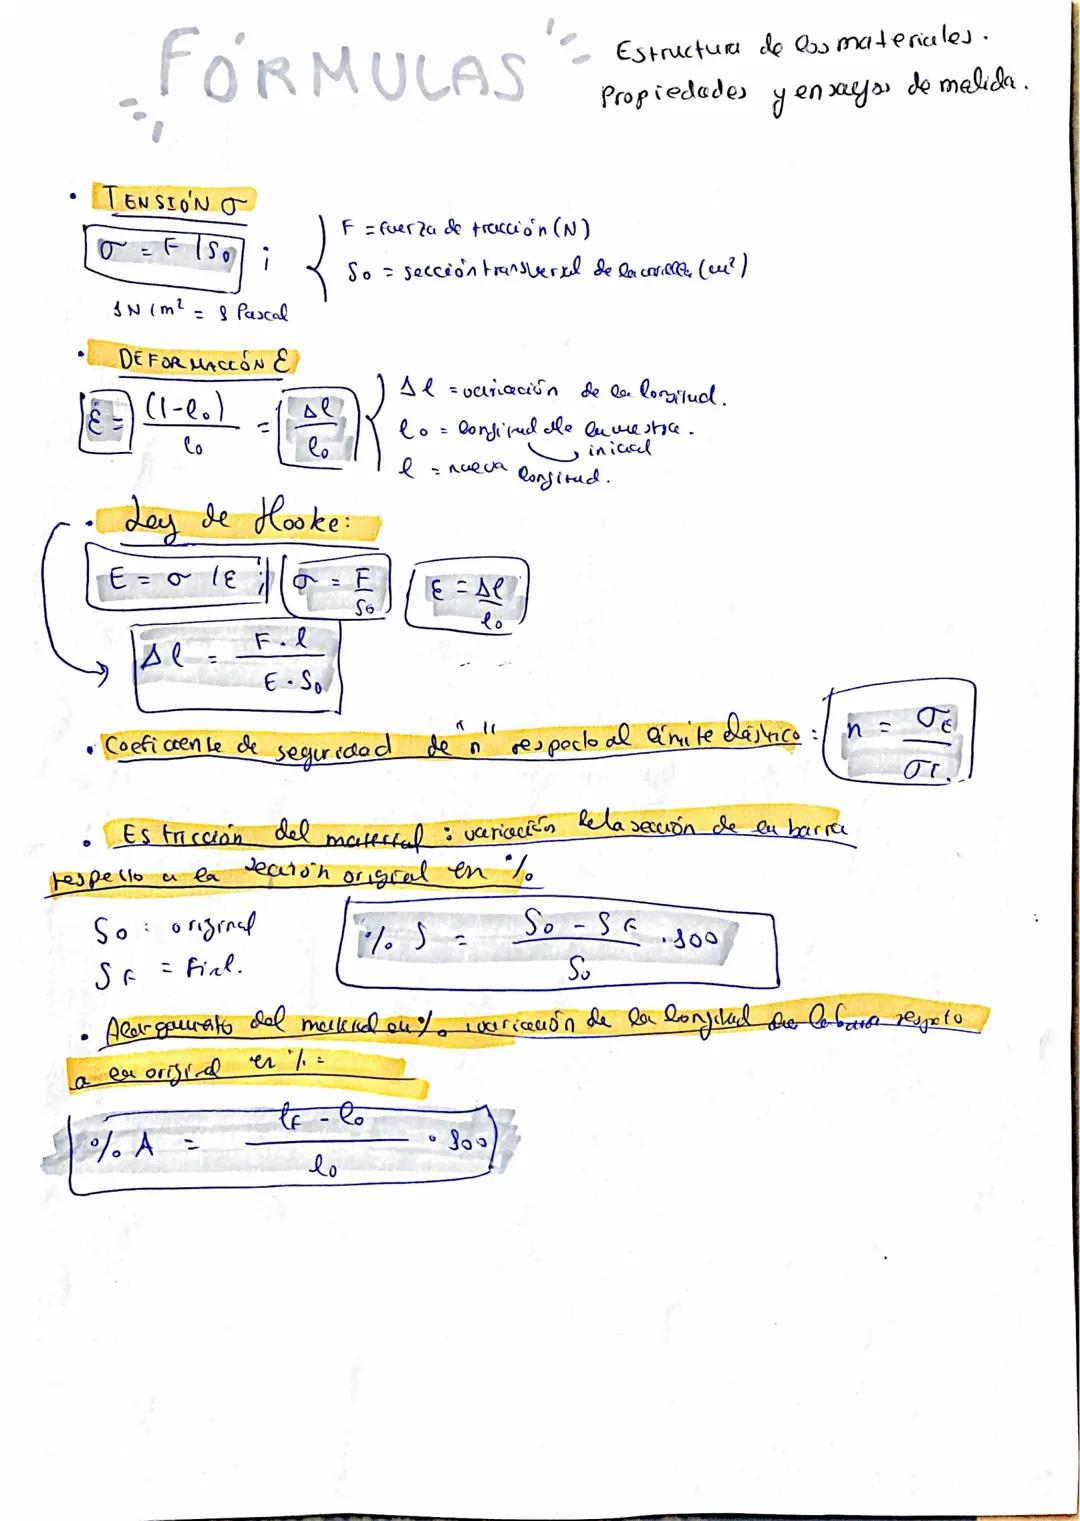 FÓRMULAS
Estructura de los materiales.
Propiedades y ensayos de medida.
• TENSIÓN σ
σ = F / S₀ ;
F = fuerza de tracción (N)
S₀ = sección transversal de la varilla (m²)
1N/m² = 1 Pascal
• DEFORMACIÓN ε
ε = (l-l₀)/l₀ = Δl/l₀
Δl = variación de la longitud.
l₀ = longitud de la muestra.
inicial
l = nueva longitud.
• Ley de Hooke:
E = σ / ε ; σ = F/S₀ ε = Δl/l₀
Δl = F · l / E · S₀
• Coeficiente de seguridad de "n" respecto al límite elástico : n = σE/σt.
• Estricción del material : variación de la sección de la barra
respecto a la sección original en %
S₀ : original
SF = Final.
% S = S₀ - SF / S₀ · 100
• Alargamiento del material en % variación de la longitud de la barra respeto
a la original en % =
% A = lF - l₀ / l₀ · 100